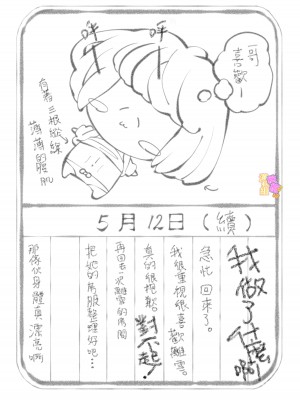 哥
喜歡~
呼~
呼~
有著三根紋線
薄薄的腹肌
5月12日(續)
我做了什麼啊
急忙回來了。
我很重視很喜歡雛雲。
真的很抱歉。對不起!
再回去一次雛雲的房間
把她的衣服整理好吧…
那傢伙身體真漂亮啊